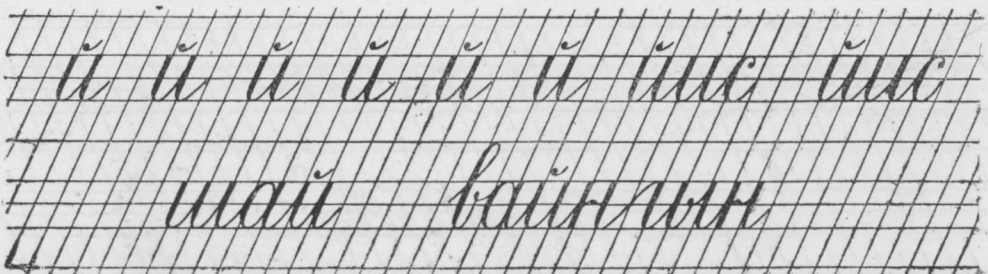 й й й й й й йис йис
шай вайнгын